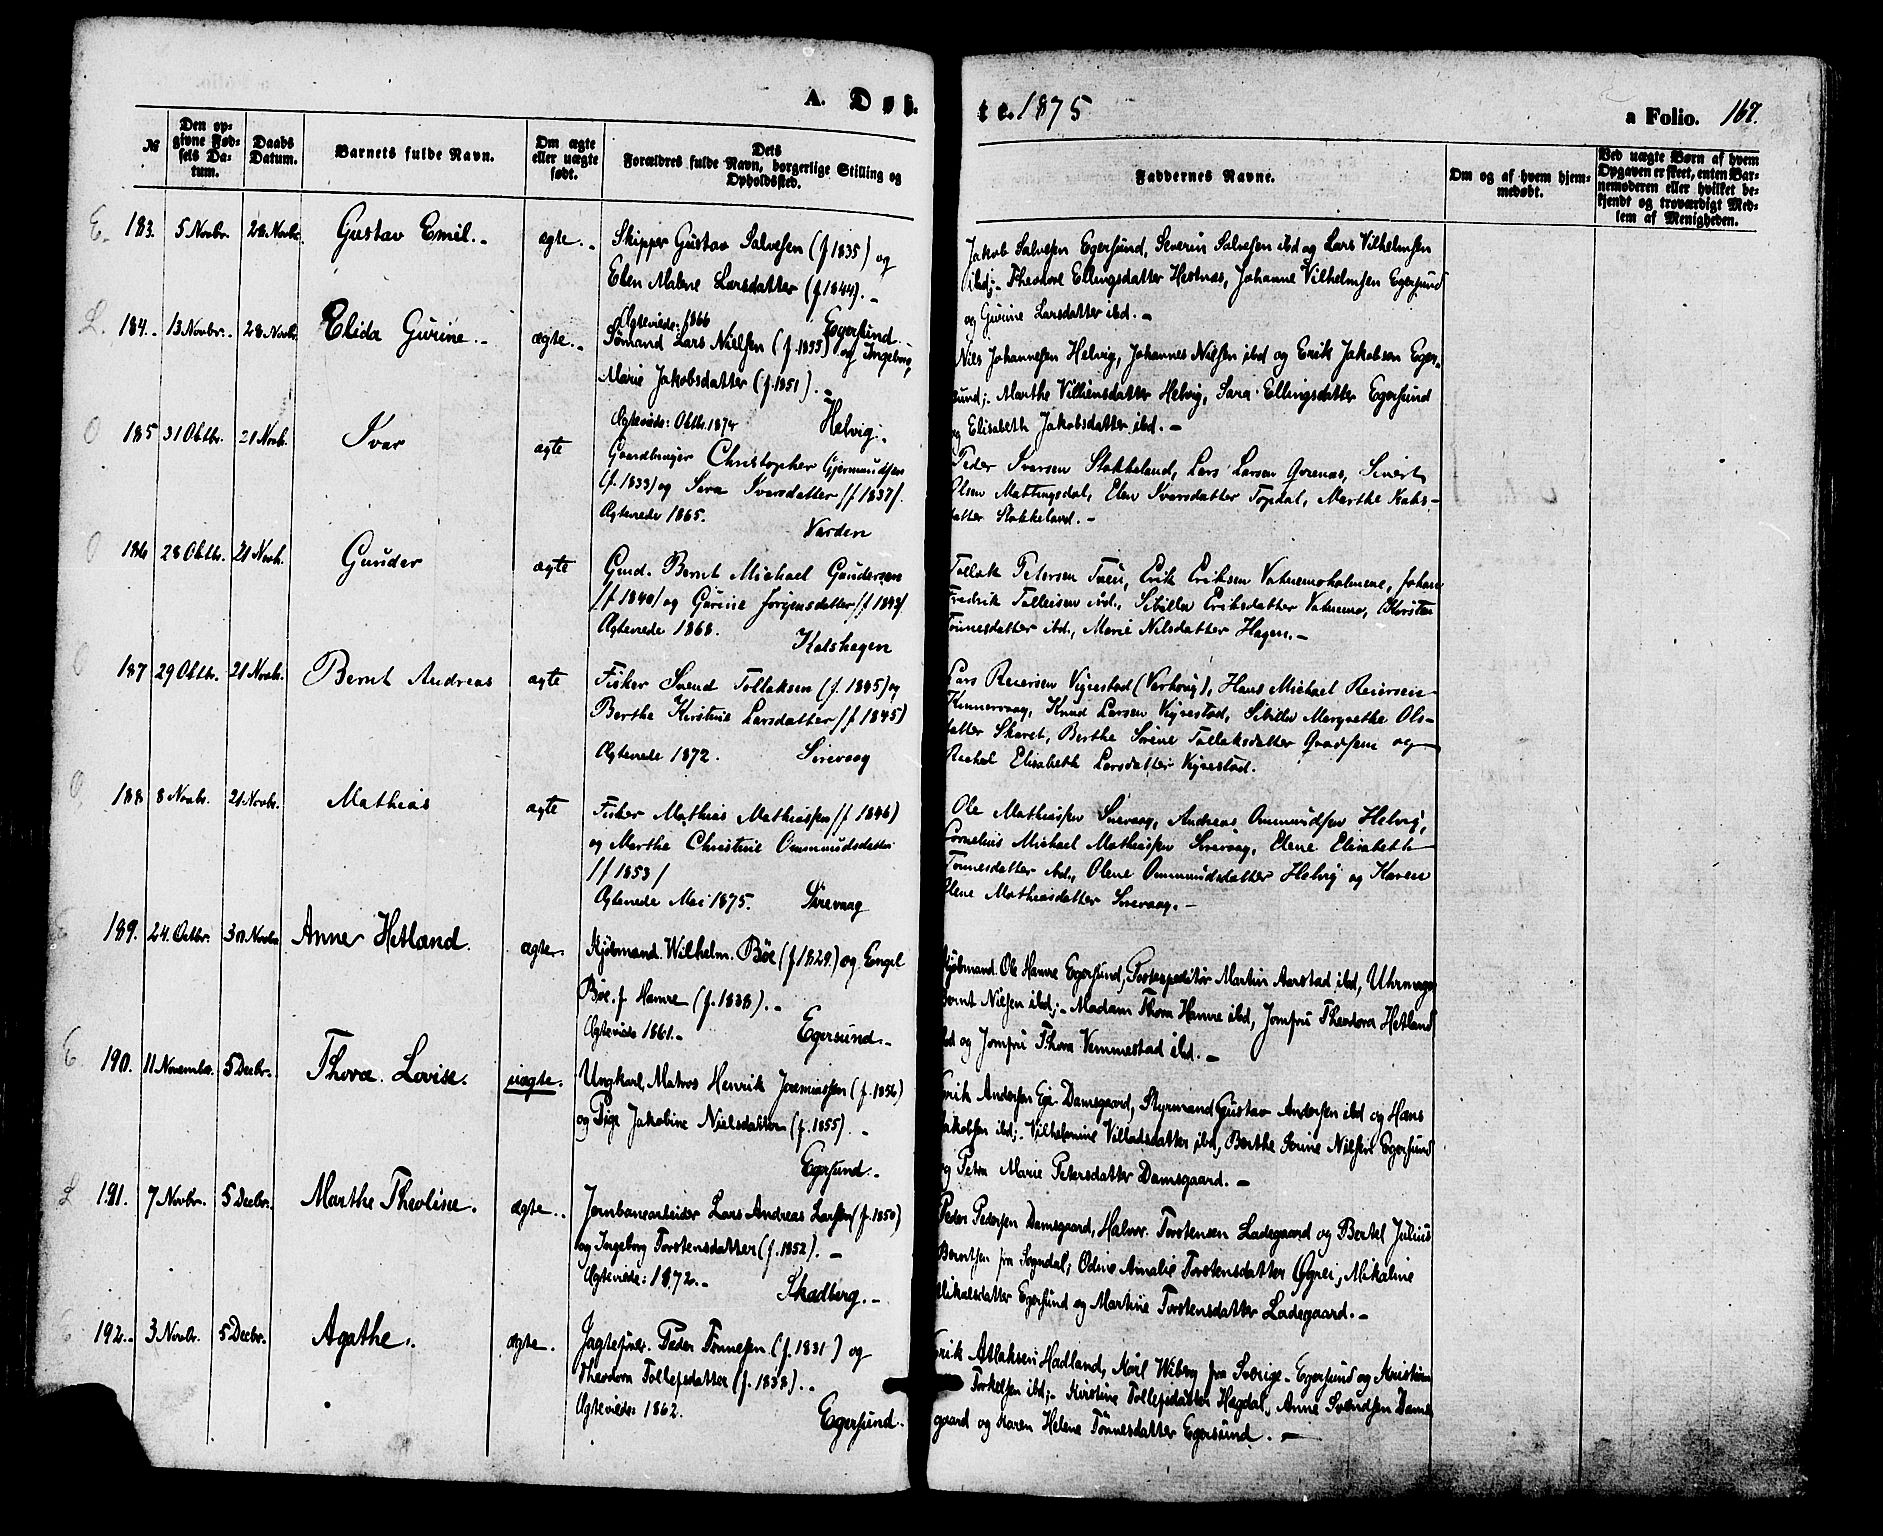 A. Døb-
te. 1875
a Folio. 167.
№
Den op-
givne Fød-
sels Da-
tum.
Daabs
Datum.
Barnets fulde Navn.
Om ægte
eller uægte
født.
Dets
Forældres fulde Navn, borgerlige Stilling og
Opholdssted.
Faddernes Navne.
Om og af hvem hjem-
medøbt.
Ved uægte Børn af hvem
Opgaven er skeet, enten Bar-
nemoderen eller hvilket be-
kjendt og troværdigt Med-
lem af Menigheden.
E. 183. 5 Novbr. 28 Novbr. Gustav Emil. ægte.
Skipper Gustav Salvesen (f 1835) og
Elen Malene Larsdatter (f. 1844). -
Ægteviede: 1866 Egersund. -
Jakob Salvesen Egersund, Severin Salvesen ibd og Lars Vilhelmsen
ibd; - Theodore Ellingsdatter Hestnæs, Johanne Vilhelmsen Egersund
og Gurine Larsdatter ibd. -
L. 184. 13 Novbr. 28 Novbr. Elida Gurine. ægte.
Sømand Lars Nielsen (f. 1855) og Ingeborg
Marie Jakobsdatter (f. 1851). -
Ægteviede: Oktbr. 1874 Helvig.
Nils Johannesen Helvig, Johannes Nilsen ibd og Erik Jakobsen Eger-
sund; - Marthe Villiensdatter Helvig, Sara Ellingsdatter Egersund
og Elisabeth Jakobsdatter ibd. -
O 185 31 Oktbr. 21 Novb. Ivar ægte
Gaardbruger Christopher Gjermundsen
(f. 1833) og Sara Ivarsdatter (f 1837).
Ægteviede 1865. Varden
Peder Iversen Stokkeland, Lars Larsen, Sivert
Olsen Mattingsdal, Elen Ivarsdatter Topdal, Marthe
datter Stokkeland. -
O 186 28 Oktbr. 21 Novb. Gunder ægte
Gmd. Bernt Michael Gundersen
(f 1840) og Gurine Jørgensdatter (f 1842)
Ægteviede 1868. Kalshagen
Tollak Petersen Tuen, Erik Eriksen Vatnemoholmene, Johan
Fredrik Tolleisen ibd., Sibilla Eriksdatter Vatnemo, Kirsten
Tønnesdatter ibd., Marie Nilsdatter Hagen. -
O 187 29 Oktbr. 21 Novb. Bernt Andreas ægte
Fisker Svend Tollaksen (f. 1845) og
Berthe Kirstine Larsdatter (f 1845)
Ægteviede 1872. Sirevaag
Lars Reiersen Vigrestad (Varhoug), Hans Michael Reiersen
Kinnervaag, Knud Larsen Vigrestad, Sibilla Margrethe Ols-
datter Skaret, Berthe Serine Tollaksdatter Qvadsem og
Rachel Elisabeth Larsdatter Vigrestad.
O. 188 8 Novbr. 21 Novbr. Mathias ægte
Fisker Mathias Mathiassen (f 1846)
og Marthe Christine Ommundsdatter
(f 1853)
Ægteviede Mai 1875. Sirevaag
Ole Mathiassen Sirevaag, Andreas Ommundsen Helvig,
Cornelius Michael Mathiassen Sirevaag, Elene Elisabeth
Tønnesdatter ibd., Olene Ommundsdatter Helvig og Karen
Olene Mathiasdatter Sirevaag. -
E 189. 24. Octbr. 30 Novbr. Anne Hetland. ægte.
Kjøbmand Wilhelm Bøe (f 1829.) og Engel
Bøe. f. Hamre (f. 1838). -
Ægteviede 1861. - Egersund. -
Kjøbmand Ole Hamre Egersund, Postexpeditør Martin Aarstad ibd, Uhrmager
Bernt Nilsen ibd; - Madam Thora Hamre ibd, Jomfru Theodora Hetland
ibd og Jomfru Thora Vemmestad ibd. -
E 190. 11 Novembr. 5 Decbr. Thora Lovise. uægte.
Ungkarl, Matros Henrik Jeremiassen (f. 1856)
og Pige Jakobine Nielsdatter (f. 1855). -
Egersund. -
Erik Andersen Eje Damsgaard, Styrmand Gustav Andersen ibd og Hans
Jakobsen ibd; - Vilhelmine Villadsdatter ibd, Berthe Serine Nilsen Egersund
og Petra Marie Petersdatter Damsgaard. -
L 191. 7 Novbr. 5 Decbr. Marthe Theoline. ægte.
Jernbanearbeider Lars Andreas Larsen (f. 1850)
og Ingeborg Torstensdatter (f. 1852). -
Ægteviede: 1872. - Skadberg. -
Peder Pedersen Damsgaard, Halvor Torstensen Ladegaard og Bertel Julius
Berntsen fra Sogndal; Odine Amalie Torstensdatter Øgrei, Mikaline
Mikalsdatter Egersund og Martine Torstensdatter Ladegaard. -
E 192. 3 Novbr. 5 Decbr. Agathe. ægte.
Jagtefører Peder Tønnesen (f. 1831) og
Theodora Tollefsdatter (f. 1838). -
Ægteviede: 1862. Egersund.
Erik Atlaksen Hadland, Karl Wiberg fra Sverige - Egersund og Kristian
Torkelsen ibd; - Kirstine Tollefsdatter Hægdal, Anne Svendsen Dams-
gaard og Karen Helene Tønnesdatter Egersund. -